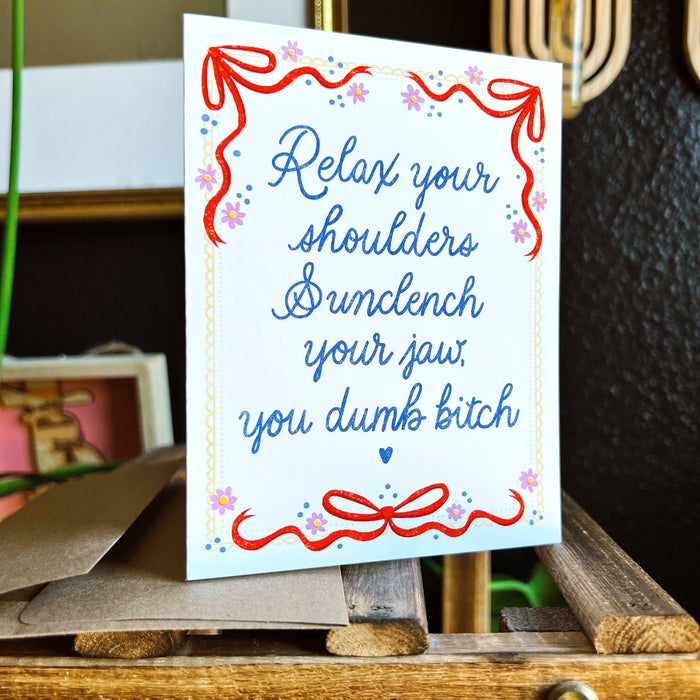 Relax your
shoulders
& unclench
your jaw,
you dumb bitch